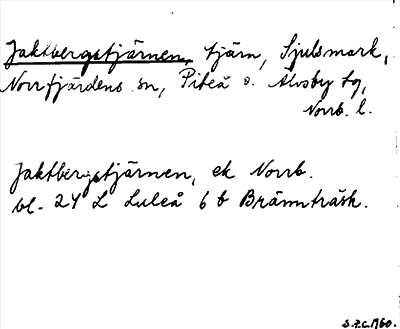 Jaktbergstjärnen, tjärn, Sjulsmark,
Norrfjärdens sn, Piteå o. Älvsby tg,
Norrb. l.
Jaktbergstjärnen, ek Norrb.
bl. 24 L Luleå 6 b Brännträsk.
S.F.C. 1960.